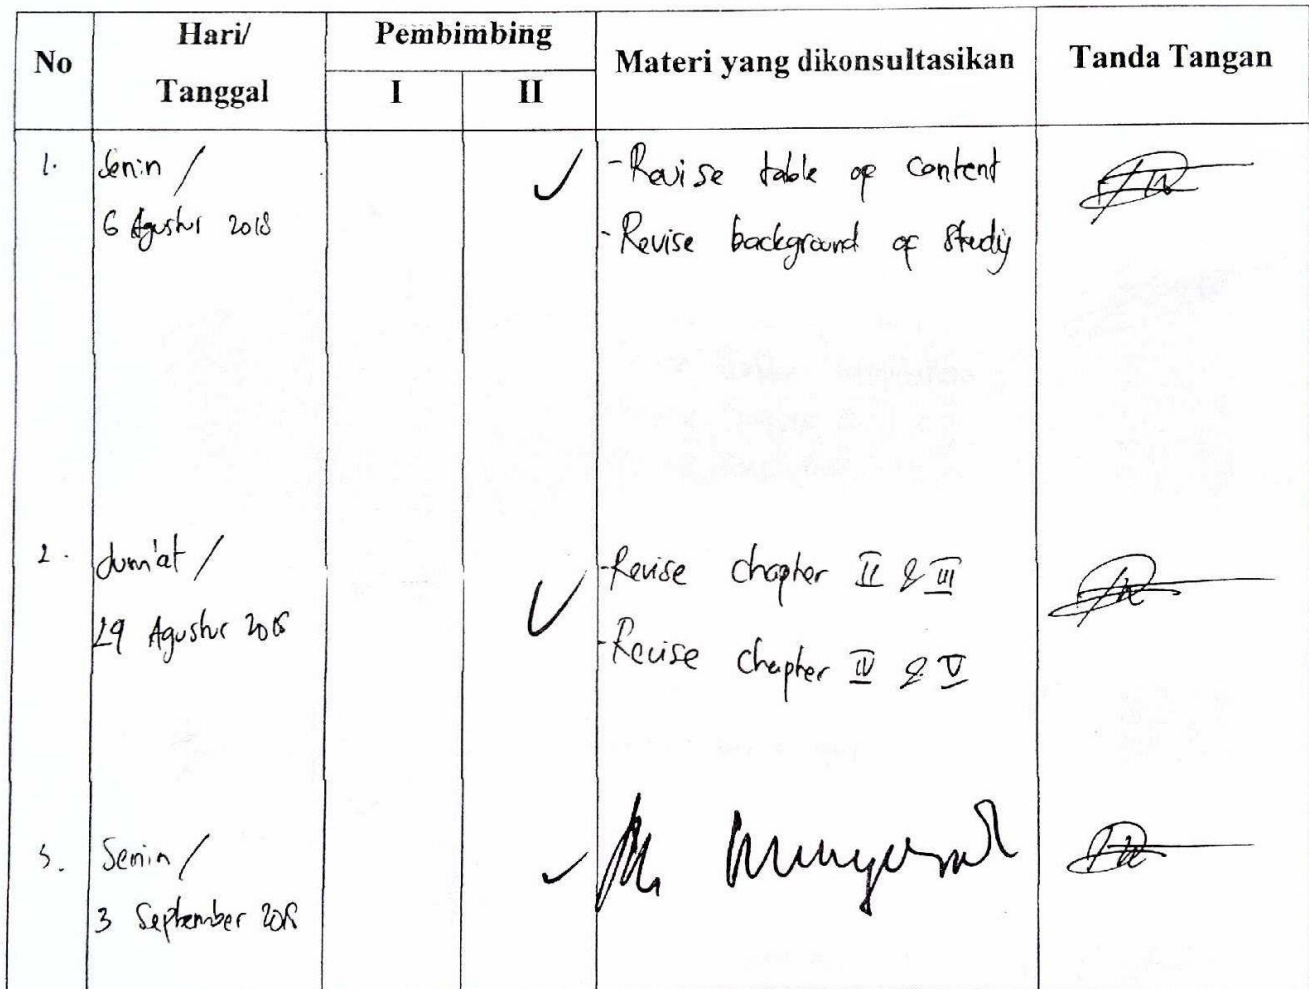 No Hari/ Tanggal Pembimbing Materi yang dikonsultasikan Tanda Tangan
I II
1. Senin /
6 Agustus 2018
- Revise table of content
- Revise background of study
2. Jum'at /
29 Agustus 2018
- Revise chapter II & III
- Revise chapter IV & V
3. Senin /
3 September 2018